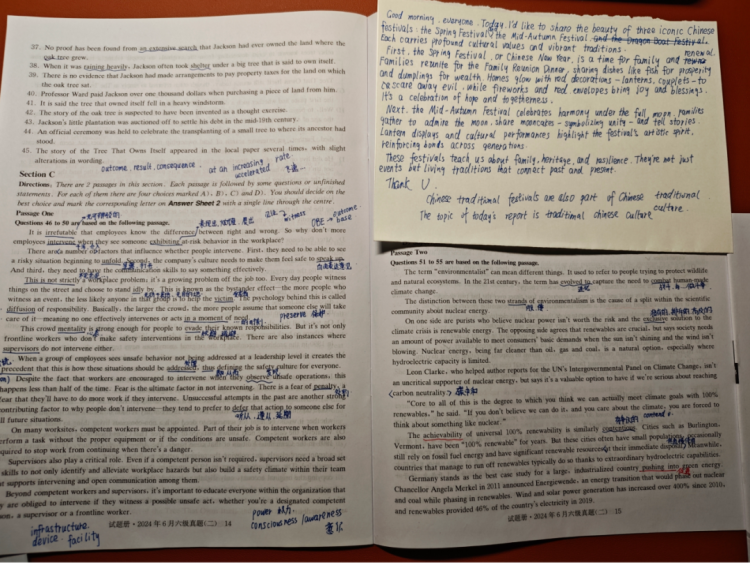 37. No proof has been found from an extensive search that Jackson had ever owned the land where the
oak tree grew.
38. When it was raining heavily, Jackson often took shelter under a big tree that is said to own itself.
39. There is no evidence that Jackson had made arrangements to pay property taxes for the land on which
the oak tree sat.
40. Professor Ward paid Jackson over one thousand dollars when purchasing a piece of land from him.
41. It is said the tree that owned itself fell in a heavy windstorm.
42. The story of the oak tree is suspected to have been invented as a thought exercise.
43. Jackson's little plantation was auctioned off to settle his debt in the mid-19th century.
44. An official ceremony was held to celebrate the transplanting of a small tree to where its ancestor had
stood.
45. The story of the Tree That Owns Itself appeared in the local paper several times, with slight
alterations in wording.
outcome, result, consequence. at an increasing rate
accelerated
Section C
Directions: There are 2 passages in this section. Each passage is followed by some questions or unfinished
statements. For each of them there are four choices marked A), B), C) and D). You should decide on the
best choice and mark the corresponding letter on Answer Sheet 2 with a single line through the centre.
Passage One
Questions 46 to 50 are based on the following passage.
witness
outcome
base
It is irrefutable that employees know the difference between right and wrong. So why don't more
employees intervene when they see someone exhibiting at-risk behavior in the workplace?
There are a number of factors that influence whether people intervene. First, they need to be able to see
a risky situation beginning to unfold. Second, the company's culture needs to make them feel safe to speak up.
And third, they need to have the communication skills to say something effectively.
This is not strictly a workplace problem; it's a growing problem off the job too. Every day people witness
things on the street and choose to stand idly by. This is known as the bystander effect—the more people who
witness an event, the less likely anyone in that group is to help the victim. The psychology behind this is called
diffusion of responsibility. Basically, the larger the crowd, the more people assume that someone else will take
care of it—meaning no one effectively intervenes or acts in a moment of need.
preserve
This crowd mentality is strong enough for people to evade their known responsibilities. But it's not only
frontline workers who don't make safety interventions in the workplace. There are also instances where
supervisors do not intervene either.
When a group of employees sees unsafe behavior not being addressed at a leadership level it creates the
precedent that this is how these situations should be addressed, thus defining the safety culture for everyone.
Despite the fact that workers are encouraged to intervene when they observe unsafe operations, this
happens less than half of the time. Fear is the ultimate factor in not intervening. There is a fear of penalty, a
fear that they'll have to do more work if they intervene. Unsuccessful attempts in the past are another strong
contributing factor to why people don't intervene—they tend to prefer to defer that action to someone else for
all future situations.
On many worksites, competent workers must be appointed. Part of their job is to intervene when workers
perform a task without the proper equipment or if the conditions are unsafe. Competent workers are also
required to stop work from continuing when there's a danger.
Supervisors also play a critical role. Even if a competent person isn't required, supervisors need a broad set
of skills to not only identify and alleviate workplace hazards but also build a safety climate within their team
that supports intervening and open communication among them.
Beyond competent workers and supervisors, it's important to educate everyone within the organization that
they are obliged to intervene if they witness a possible unsafe act, whether you're a designated competent
person, a supervisor or a frontline worker.
power
consciousness / awareness
infrastructure
device facility
试题册·2024 年 6 月六级真题(二)·14
Good morning, everyone. Today, I'd like to share the beauty of three iconic Chinese
festivals: the Spring Festival, the Mid-Autumn Festival and the Dragon Boat Festival.
Each carries profound cultural values and vibrant traditions.
First, the Spring Festival, or Chinese New Year, is a time for family and renewal.
Families reunite for the Family Reunion Dinner, sharing dishes like fish for prosperity
and dumplings for wealth. Homes glow with red decorations—lanterns, couplets—to
scare away evil, while fireworks and red envelopes bring joy and blessings.
It's a celebration of hope and togetherness.
Next, the Mid-Autumn Festival celebrates harmony under the full moon. Families
gather to admire the moon, share mooncakes—symbolizing unity—and tell stories.
Lantern displays and cultural performances highlight the festival's artistic spirit,
reinforcing bonds across generations.
These festivals teach us about family, heritage, and resilience. They're not just
events but living traditions that connect past and present.
Thank U.
Chinese traditional festivals are also part of Chinese traditional
culture.
The topic of today's report is traditional chinese culture
Passage Two
Questions 51 to 55 are based on the following passage.
The term "environmentalist" can mean different things. It used to refer to people trying to protect wildlife
and natural ecosystems. In the 21st century, the term has evolved to capture the need to combat human-made
climate change.
The distinction between these two strands of environmentalism is the cause of a split within the scientific
community about nuclear energy.
On one side are purists who believe nuclear power isn't worth the risk and the exclusive solution to the
climate crisis is renewable energy. The opposing side agrees that renewables are crucial, but says society needs
an amount of power available to meet consumers' basic demands when the sun isn't shining and the wind isn't
blowing. Nuclear energy, being far cleaner than oil, gas and coal, is a natural option, especially where
hydroelectric capacity is limited.
Leon Clarke, who helped author reports for the UN's Intergovernmental Panel on Climate Change, isn't
an uncritical supporter of nuclear energy, but says it's a valuable option to have if we're serious about reaching
carbon neutrality.
"Core to all of this is the degree to which you think we can actually meet climate goals with 100%
renewables," he said. "If you don't believe we can do it, and you care about the climate, you are forced to
think about something like nuclear."
The achievability of universal 100% renewability is similarly contentious. Cities such as Burlington,
Vermont, have been "100% renewable" for years. But these cities often have small populations, occasionally
still rely on fossil fuel energy and have significant renewable resources at their immediate disposal. Meanwhile,
countries that manage to run off renewables typically do so thanks to extraordinary hydroelectric capabilities.
Germany stands as the best case study for a large, industrialized country pushing into green energy.
Chancellor Angela Merkel in 2011 announced Energiewende, an energy transition that would phase out nuclear
and coal while phasing in renewables. Wind and solar power generation has increased over 400% since 2010,
and renewables provided 46% of the country's electricity in 2019.
试题册·2024 年 6 月六级真题(二)·15